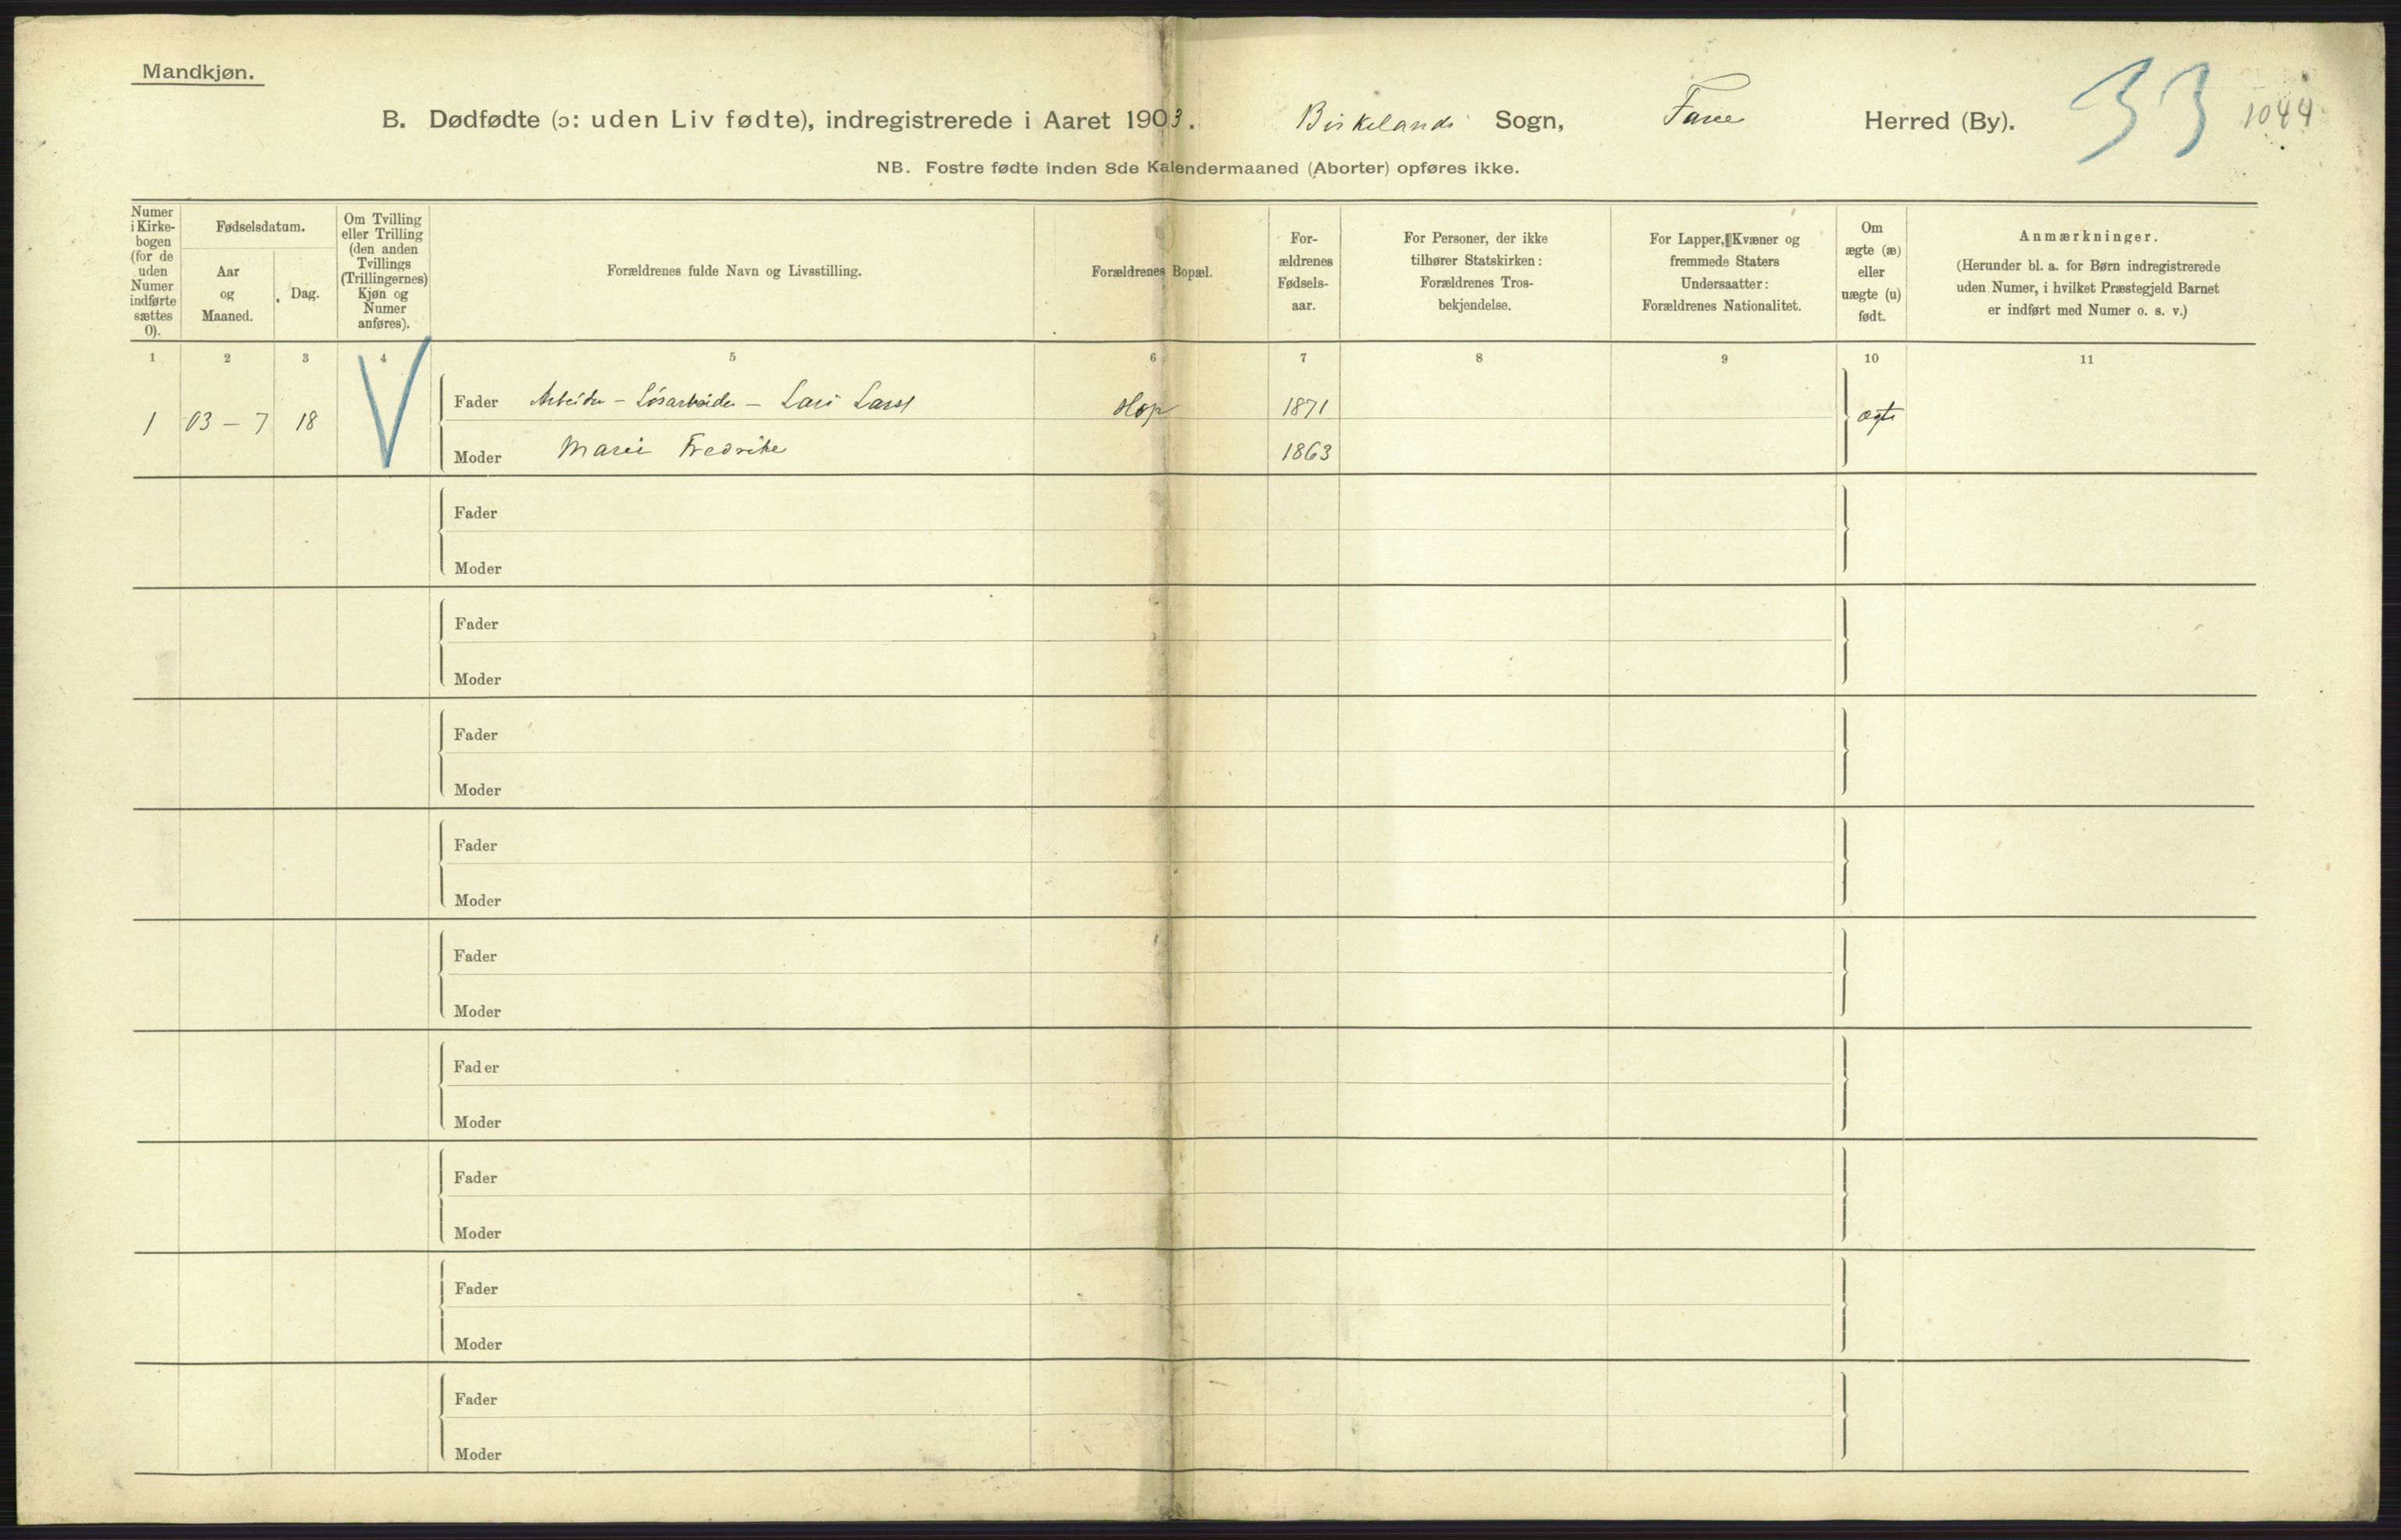 Mandkjøn.
B. Dødfødte (ɔ: uden Liv fødte), indregistrerede i Aaret 1903. Birkelands Sogn, Fane Herred (By). 33 1044
NB. Fostre fødte inden 8de Kalendermaaned (Aborter) opføres ikke.
Numer
i Kirke-
bogen
(for de
uden
Numer
indførte
sættes
0).
Fødselsdatum.
Aar
og
Maaned.
Dag.
Om Tvilling
eller Trilling
(den anden
Tvillings
(Trillingernes)
Kjøn og
Numer
anføres).
Forældrenes fulde Navn og Livsstilling.
Forældrenes Bopæl.
For-
ældrenes
Fødsels-
aar.
For Personer, der ikke
tilhører Statskirken:
Forældrenes Tros-
bekjendelse.
For Lapper, Kvæner og
fremmede Staters
Undersaatter:
Forældrenes Nationalitet.
Om
ægte (æ)
eller
uægte (u)
født.
Anmærkninger.
(Herunder bl. a. for Børn indregistrerede
uden Numer, i hvilket Præstegjeld Barnet
er indført med Numer o. s. v.)
1 2 3 4 5 6 7 8 9 10 11
Fader Arbeider - Løsarbeider - Lars Larss Hop 1871
1 03 - 7 18 ægte
Moder Marie Fredrike 1863
Fader
Moder
Fader
Moder
Fader
Moder
Fader
Moder
Fader
Moder
Fader
Moder
Fader
Moder
Fader
Moder
Fader
Moder